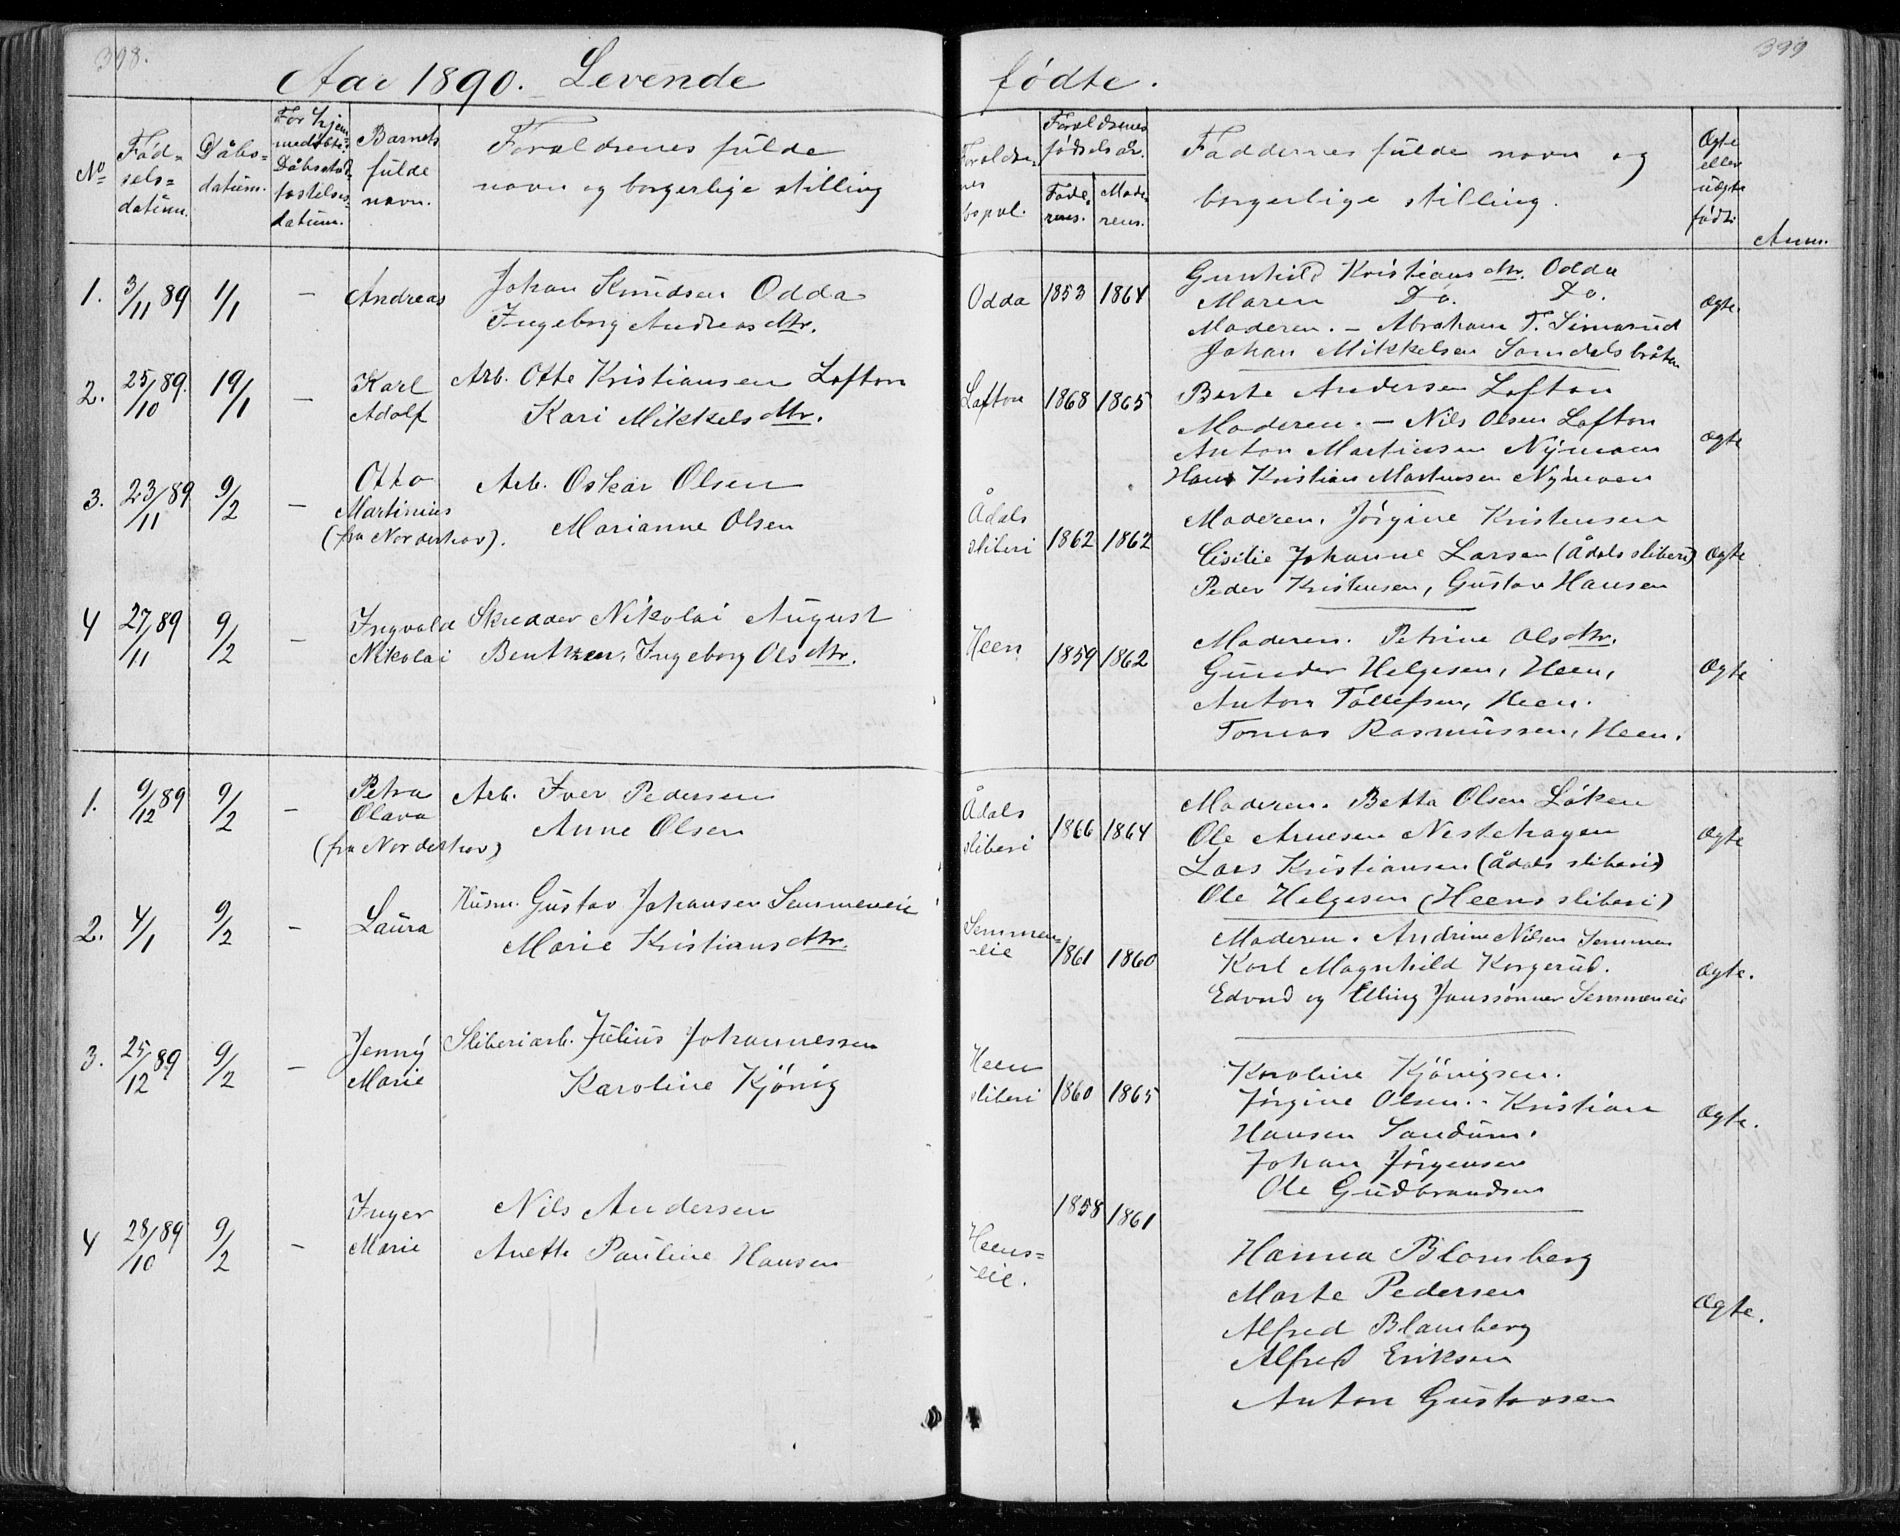 398.
Aar 1890. Levende
No
Fød=
sels=
datum.
Dåbs=
datum.
For hjem
medøbte:
Dåbsstad
fæstelses
datum.
Barnets
fulde
navn.
Forældrenes fulde
navn og borgerlige stilling
1. 3/11 89 1/1 — Andreas
Johan Knudsen Odda
Ingeborg Andreasdtr.
2. 25/10 89. 19/1 —
Karl
Adolf
Arb. Otto Kristiansen Lofton
Kari Mikkelsdtr.
3. 23/11 89 9/2 —
Otto
Martinius
(fra Norderhov).
Arb. Oskar Olsen
Marianne Olsen
4 27/11 89 9/2 —
Ingvald
Nikolai
Skredder Nikolai August
Bentzen, Ingeborg Olsdtr.
1. 9/12 89 9/2 —
Petra
Olava
(fra Norderhov)
Arb. Iver Pedersen
Anne Olsen
2. 4/1 9/2 — Laura
Husm. Gustav Johansen Semmeneie
Marie Kristiansdtr.
3. 25/12 89 9/2 —
Jenny
Marie
Sliberiarb. Julius Johannessen
Karoline Kjönig
4 28/10 89 9/2 —
Inger
Marie
Nils Andersen
Anette Pauline Hansen
399
fødte.
Forældre=
nes
bopæl.
Forældrenes
fødselsår.
Fade=
rens.
Mode=
rens.
Faddernes fulde navn og
borgerlige stilling.
Ægte
eller
uægte
født.
Anm.
Odda 1853 1864
Gunhild Kristiansdtr. Odda
Maren Do. Do.
Moderen. — Abraham T. Simarud
Johan Mikkelsen Somdalsbråten
Ægte.
Lofton 1868 1865
Berte Andersen Lofton
Moderen. — Nils Olsen Lofton
Anton Martinsen Nymoen
Hans Kristian Martinsen Nymoen
Ægte
Ådals
sliberi 1862 1862
Moderen. Jörgine Kristensen
Cisilie Johanne Larsen (Ådals sliberi)
Peder Kristensen, Gustav Hansen
Ægte
Heen 1859 1862
Moderen. Petrine Olsdtr.
Gunder Helgesen, Heen,
Anton Tollefsen, Heen.
Tomas Rasmussen, Heen.
Ægte
Ådals
sliberi 1866 1864
Moderen. Betta Olsen Löken
Ole Arnesen Nestehagen
Lars Kristiansen (Ådals sliberi)
Ole Helgesen (Heens sliberi)
Ægte
Semmen=
-eie 1861 1860
Moderen. Andrine Nilsen Semmen
Karl Magnhild Korgerud.
Edvard og Elling Janssönner Semmeneie
Ægte.
Heen
sliberi 1860 1865
Karoline Kjönigsen.
Jörgine Olsen. - Kristian
Hansen Sandum.
Johan Jörgensen
Ole Gudbrandsen
Ægte.
Heens=
-eie. 1858 1861
Hanna Blomberg
Marte Pedersen
Alfred Blomberg
Alfred Eriksen
Anton Gustavsen
Ægte.